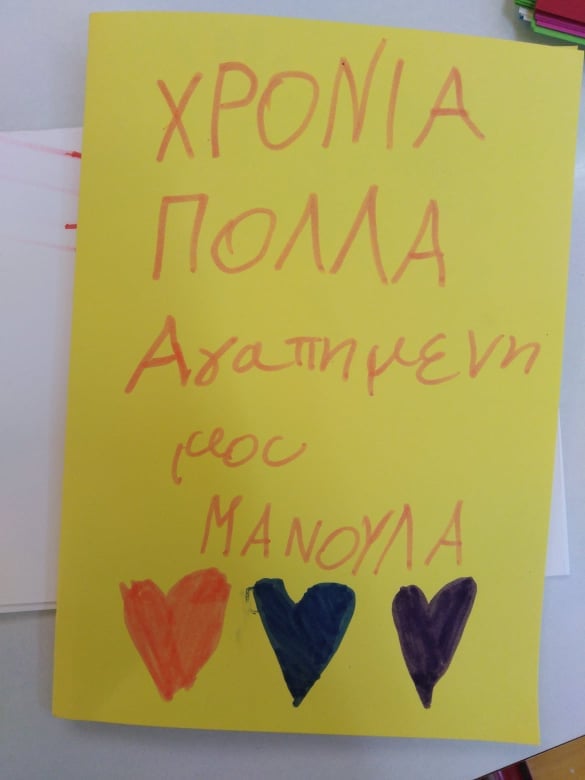 ΧΡΟΝΙΑ
ΠΟΛΛΑ
Αγαπημενη
μου
ΜΑΝΟΥΛΑ